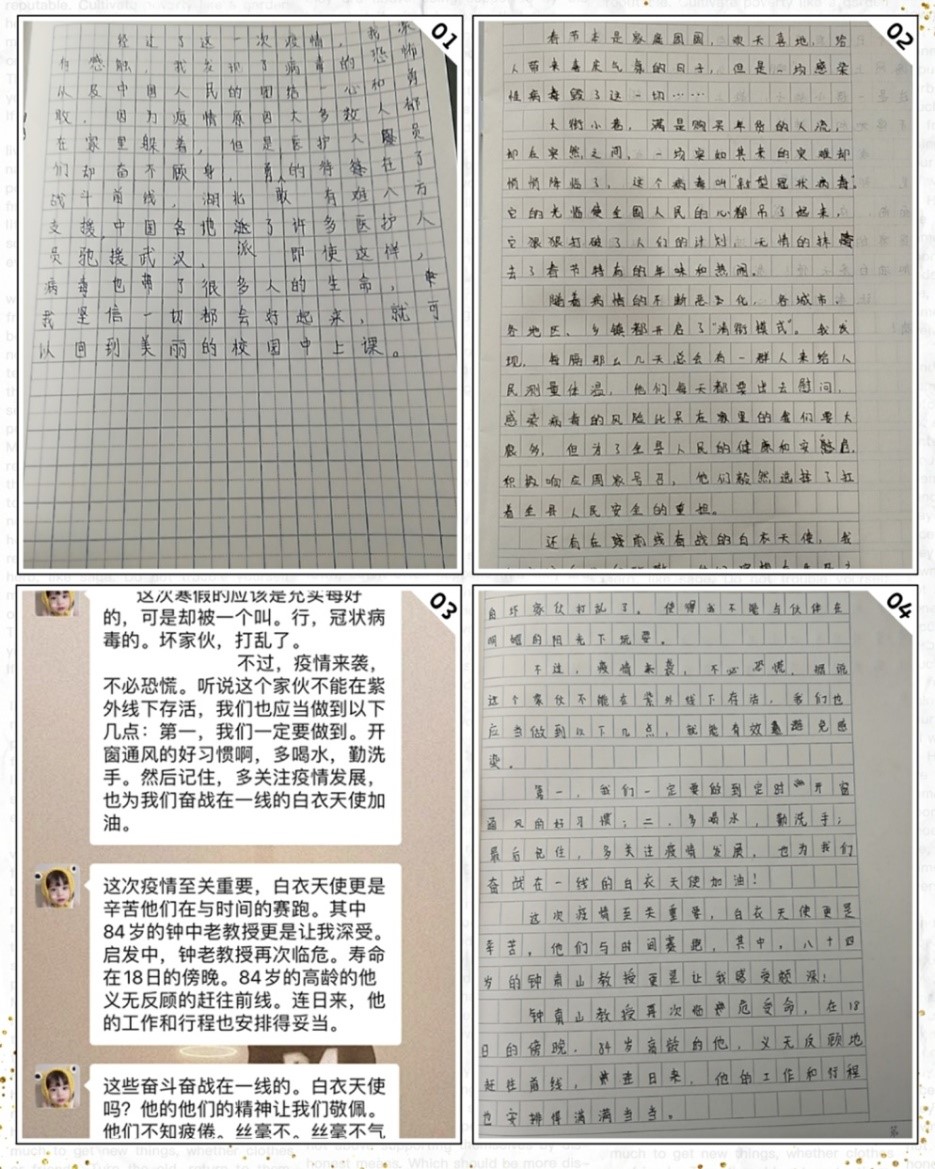 reputable. Cultivate poverty like a garden
01
经过了这一次疫情,我深
有感触,我发现了病毒的恐怖
以及中国人民的团结一心和勇
敢,因为疫情原因大多数人都
在家里躲着,但是医护人员
们却奋不顾身,勇敢的在了
战斗前线,湖北有难八方
支援,中国各地派了许多医护人
员驰援武汉,即使这样,
病毒也带了很多人的生命,
我坚信一切都会好起来,就可
以回到美丽的校园中上课。
02
春节本是家庭团圆,欢天喜地,给
人带来喜庆气氛的日子,但是一场感染
性病毒毁了这一切……
大街小巷,满是购买年货的人流,
却在突然之间,一场突如其来的灾难却
悄悄降临了,这个病毒叫“新型冠状病毒”
它的光临使全国人民的心都吊了起来,
它狠狠打破了人们的计划,无情的抹
去了春节特有的年味和热闹。
随着疫情的不断恶化,各城市,
各地区、乡镇都开启了“消街模式”。我发
现,每隔那么几天总会有一群人来给人
民测量体温,他们每天都要出去慰问,
感染病毒的风险比呆在家里的者们要大
很多,但为了全县人民的健康和安慰,
积极响应国家号召,他们毅然选择了扛
着全县人民安全的重担。
还有在线奋战的白衣天使,我
03
这次寒假的应该是充实每好
的,可是却被一个叫。行,冠状病
毒的。坏家伙,打乱了。
不过,疫情来袭,
不必恐慌。听说这个家伙不能在紫
外线下存活,我们也应当做到以下
几点:第一,我们一定要做到。开
窗通风的好习惯啊,多喝水,勤洗
手。然后记住,多关注疫情发展,
也为我们奋战在一线的白衣天使加
油。
这次疫情至关重要,白衣天使更是
辛苦他们在与时间的赛跑。其中
84岁的钟中老教授更是让我深受。
启发中,钟老教授再次临危。寿命
在18日的傍晚。84岁的高龄的他
义无反顾的赶往前线。连日来,他
的工作和行程也安排得妥当。
这些奋斗奋战在一线的。白衣天使
吗?他的他们的精神让我们敬佩。
他们不知疲倦。丝毫不。丝毫不气
04
自坏家伙打乱了。使得我不能与伙伴在
明媚的阳光下玩耍。
不过,疫情来袭,不必恐慌,据说
这个家伙不能在紫外线下存活,我们也
应当做到以下几点,就能有效避免感
染。
第一,我们一定要做到定时开窗
通风的好习惯;二、多喝水,勤洗手;
最后记住,多关注疫情发展,也为我们
奋战在一线的白衣天使加油!
这次疫情至关重要,白衣天使更是
辛苦,他们与时间赛跑,其中,八十四
岁的钟南山教授更是让我感受颇深!
钟南山教授再次临危受命,在18
日的傍晚,84岁高龄的他,义无反顾地
赶往前线,连日来,他的工作和行程
也安排得满满当当。
much to get new things, whether clothes
honest means. Which should be more dis-